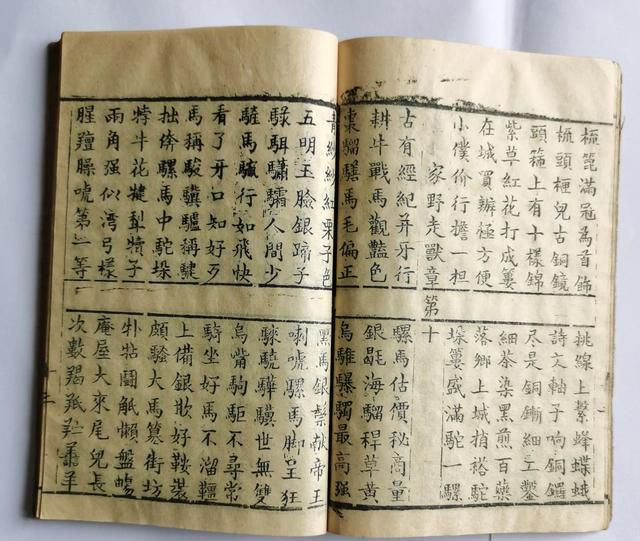 梳篦滿冠為首飾 挑線上繫蜂蝶蛾
梳頭梗兒古銅鏡 詩文軸子响銅鑼
頭箍上有十樣錦 尽是銅細工鏨
紫草紅花打成蔞 細茶染黑煎百藥
在城買辦極方便 落鄉上城揹褡駝
小僕价行擔一担 垜蔞盛滿駝一騾
家野走獸章第十
古有經紀并牙行 騾馬估價秘商量
耕牛戰馬觀豔色 銀毼海騮稈草黃
棗騮馬毛偏正 烏騅驃最高强
青紗紗紅栗子色 黑馬銀鬃献帝王
五明玉臉銀蹄子 喇唬騾馬脚呈狂
騄駬驌驦人間少 騋驍驊驥世無雙
馬行如飛快 烏嘴駒駏不尋常
看了牙口知好歹 騎坐好馬不溜韁
馬稱駿驥驢稱 上備銀好鞍裝
拙侉騾馬中駝垜 頗騷大馬篡街坊
牸牛花犍犁犢子 牯鬪觝懶盤
兩角强似湾弓樣 庵屋大來尾兒長
腥羶臊唬第一等 次數羯羝羊